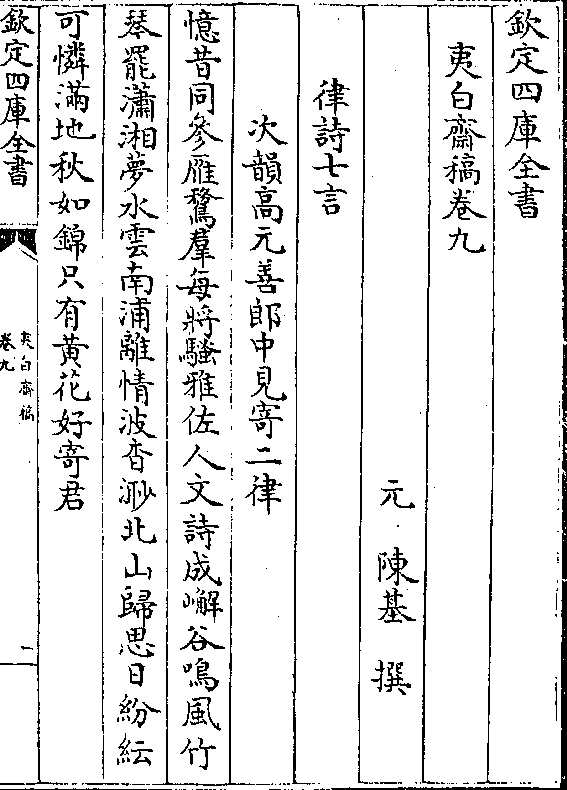 欽定四庫全書
夷白齋稿卷九
元 陳基 撰
律詩七言
次韻高元善郎中見寄二律
憶昔同參雁鶩羣每將騷雅佐人文詩成嶰谷鳴風竹
琴罷瀟湘夢水雲南浦離情波杳渺北山歸思日紛紜
可憐滿地秋如錦只有黃花好寄君
欽定四庫全書
夷白齋稿
卷九
一